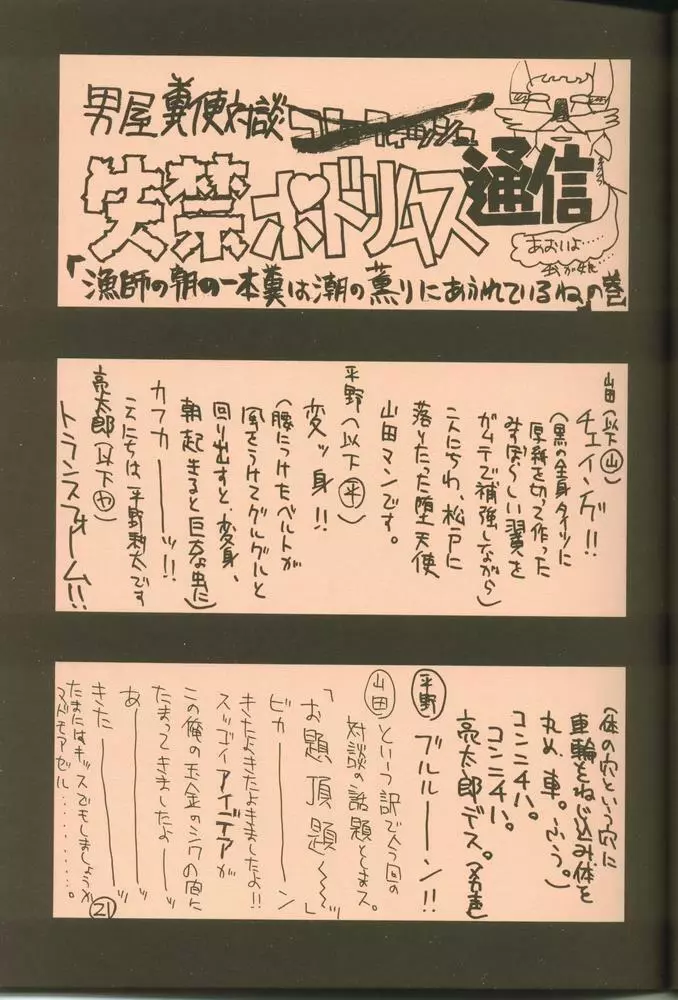 男屋糞便対談
失禁ボドリムス通信
あおいよ……
我が娘…
「漁師の朝の一本糞は潮の薫りにあふれているね」の巻
山田（以下㊤山）
チェイング!!
（黒の全身タイツに
厚紙を切って作った
みすぼらしい翼を
ガムテで補強しながら）
こんにちわ、松戸に
落りたった堕天使
山田マンです。
平野（以下平）
変ッ身!!
（腰につけたベルトが
風をうけてグルグルと
回り出すと、変身、
朝起きると巨大な虫に）
カフカーーッ!!
こんにちは、平野利太です
亮太郎（以下ヤ）
トランスフォーム!!
（体の穴という穴に
車輪をねじ込み体を
丸め、車。ふう。）
コンニチハ。
コンニチハ。
亮太郎デス。（カ声）
平野 ブルルーーン!!
山田 という訳で今回の
対談の話題としまス。
「お題頂題〜〜」
ビカーーーン
きたよきたよきましたよ!!
スッゴイアイデアが
この俺の玉金のシワの間に
たまってきましたよーーッ
あーーーーッ
きたーーーーッ
たまにはキッスでもしましょうか
マドモアゼル…………。
21